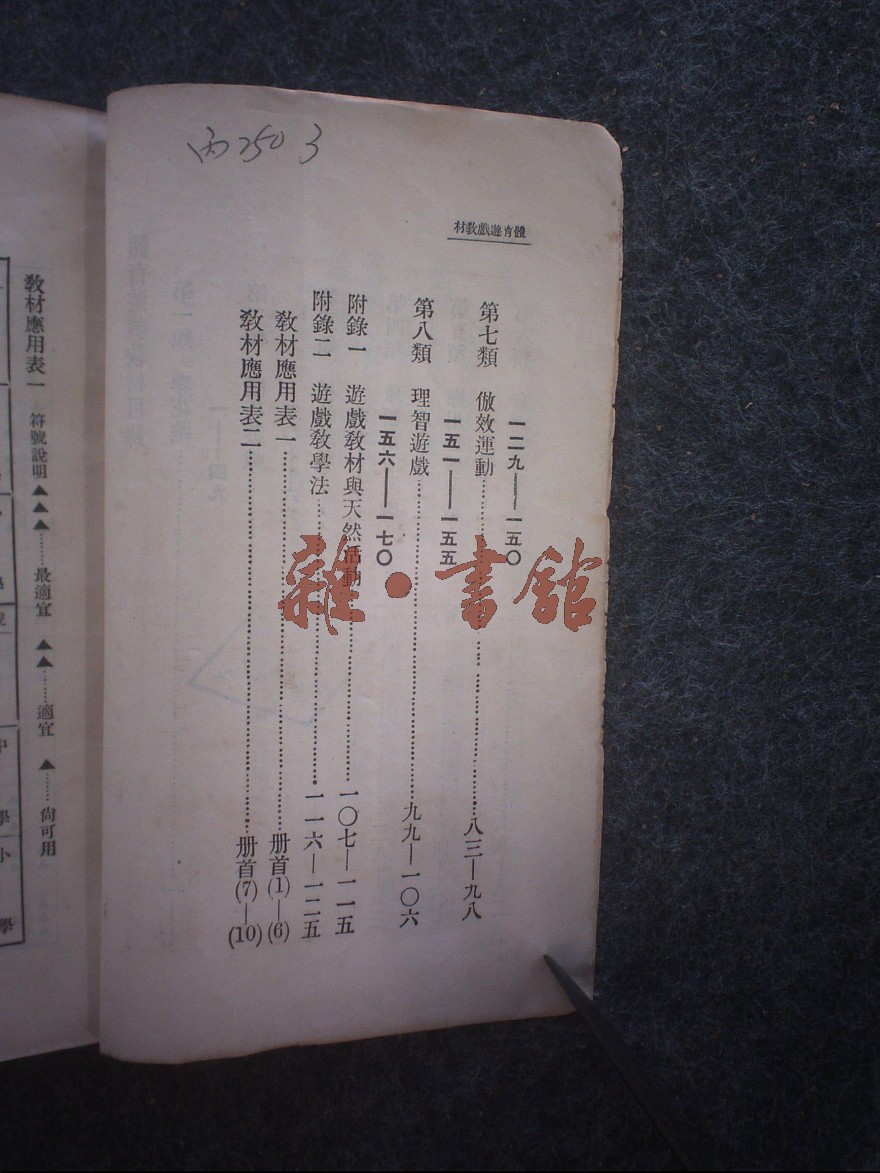 丙250 3
體育遊戲敎材
一二九——一五〇
第七類 倣效運動……八三—九八
一五一——一五五
第八類 理智遊戲……九九—一〇六
一五六——一七〇
附錄一 遊戲敎材與天然活動……一〇七—一一五
附錄二 遊戲敎學法……一一六—一二五
敎材應用表一……册首(1)—(6)
敎材應用表二……册首(7)—(10)
敎材應用表一 符號說明▲▲▲……最適宜 ▲▲……適宜 ▲……尙可用
中學
小學
雜·書舘